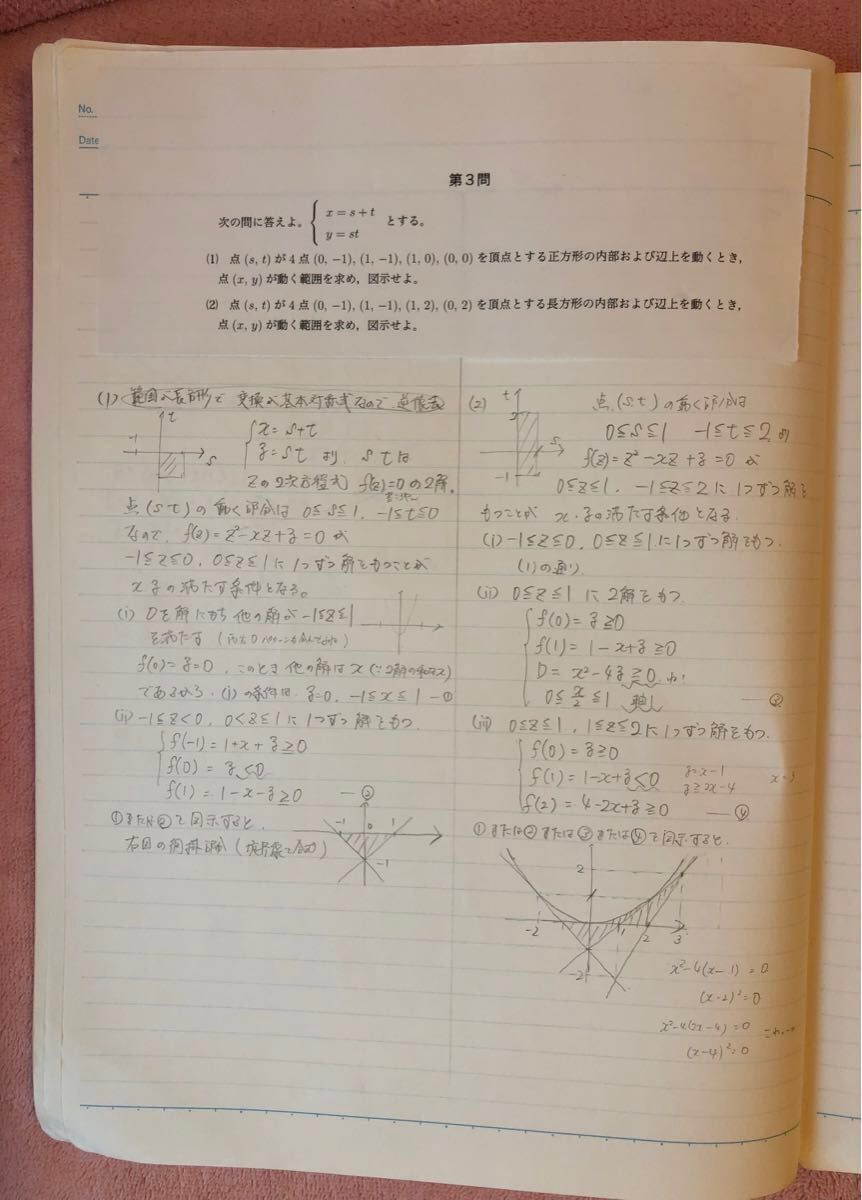 No.
Date
第3問
次の問に答えよ。 { x = s + t y = st とする。
(1) 点 (s, t) が 4 点 (0, −1), (1, −1), (1, 0), (0, 0) を頂点とする正方形の内部および辺上を動くとき,
点 (x, y) が動く範囲を求め, 図示せよ。
(2) 点 (s, t) が 4 点 (0, −1), (1, −1), (1, 2), (0, 2) を頂点とする長方形の内部および辺上を動くとき,
点 (x, y) が動く範囲を求め, 図示せよ。
(1) 範囲が長方形で 変換が基本対称式なので
t
-1
s
x = s+t
y = st より. s t は
zの2次方程式 f(z)=0 の2解.
点 (s t) の動く部分は 0≦s≦1, -1≦t≦0
なので, f(z) = z²-xz+y=0 が
-1≦z≦0, 0≦z≦1 に1つずつ解をもつことが
x y の満たす条件となる。
(i) 0を解にもち 他の解が -1≦z≦1
を満たす
f(0)=y=0, このとき 他の解は x (∵2解の和はx)
であるから. (i) の条件は. y=0, -1≦x≦1 ー①
(ii) -1≦z<0, 0<z≦1 に1つずつ解をもつ.
f(-1) = 1+x+y≧0
f(0) = y<0
f(1) = 1-x+y≧0 ー②
①または②で図示すると.
右図の斜線部分 (境界線を含む)
-1
0
1
-1
(2)
t
2
s
-1
点 (s.t) の動く部分は
0≦s≦1 -1≦t≦2 より
f(z)=z²-xz+y=0 が
0≦z≦1, -1≦z≦2 に1つずつ解を
もつことが x.y の満たす条件となる.
(i) -1≦z≦0, 0≦z≦1 に1つずつ解をもつ.
(1) の通り
(ii) 0≦z≦1 に2解をもつ.
f(0) = y≧0
f(1) = 1-x+y≧0
D = x²-4y≧0
0≦x/2≦1 ー③
(iii) 0≦z≦1, 1≦z≦2 に1つずつ解をもつ.
f(0) = y≧0
f(1) = 1-x+y<0 y=x-1
y≧2x-4
f(2) = 4-2x+y≧0 ー④
①または②または③または④で図示すると.
2
-2
1
2
3
-2
x²-4(x-1) = 0
(x-2)²=0
x²-4(2x-4)=0
(x-4)²=0